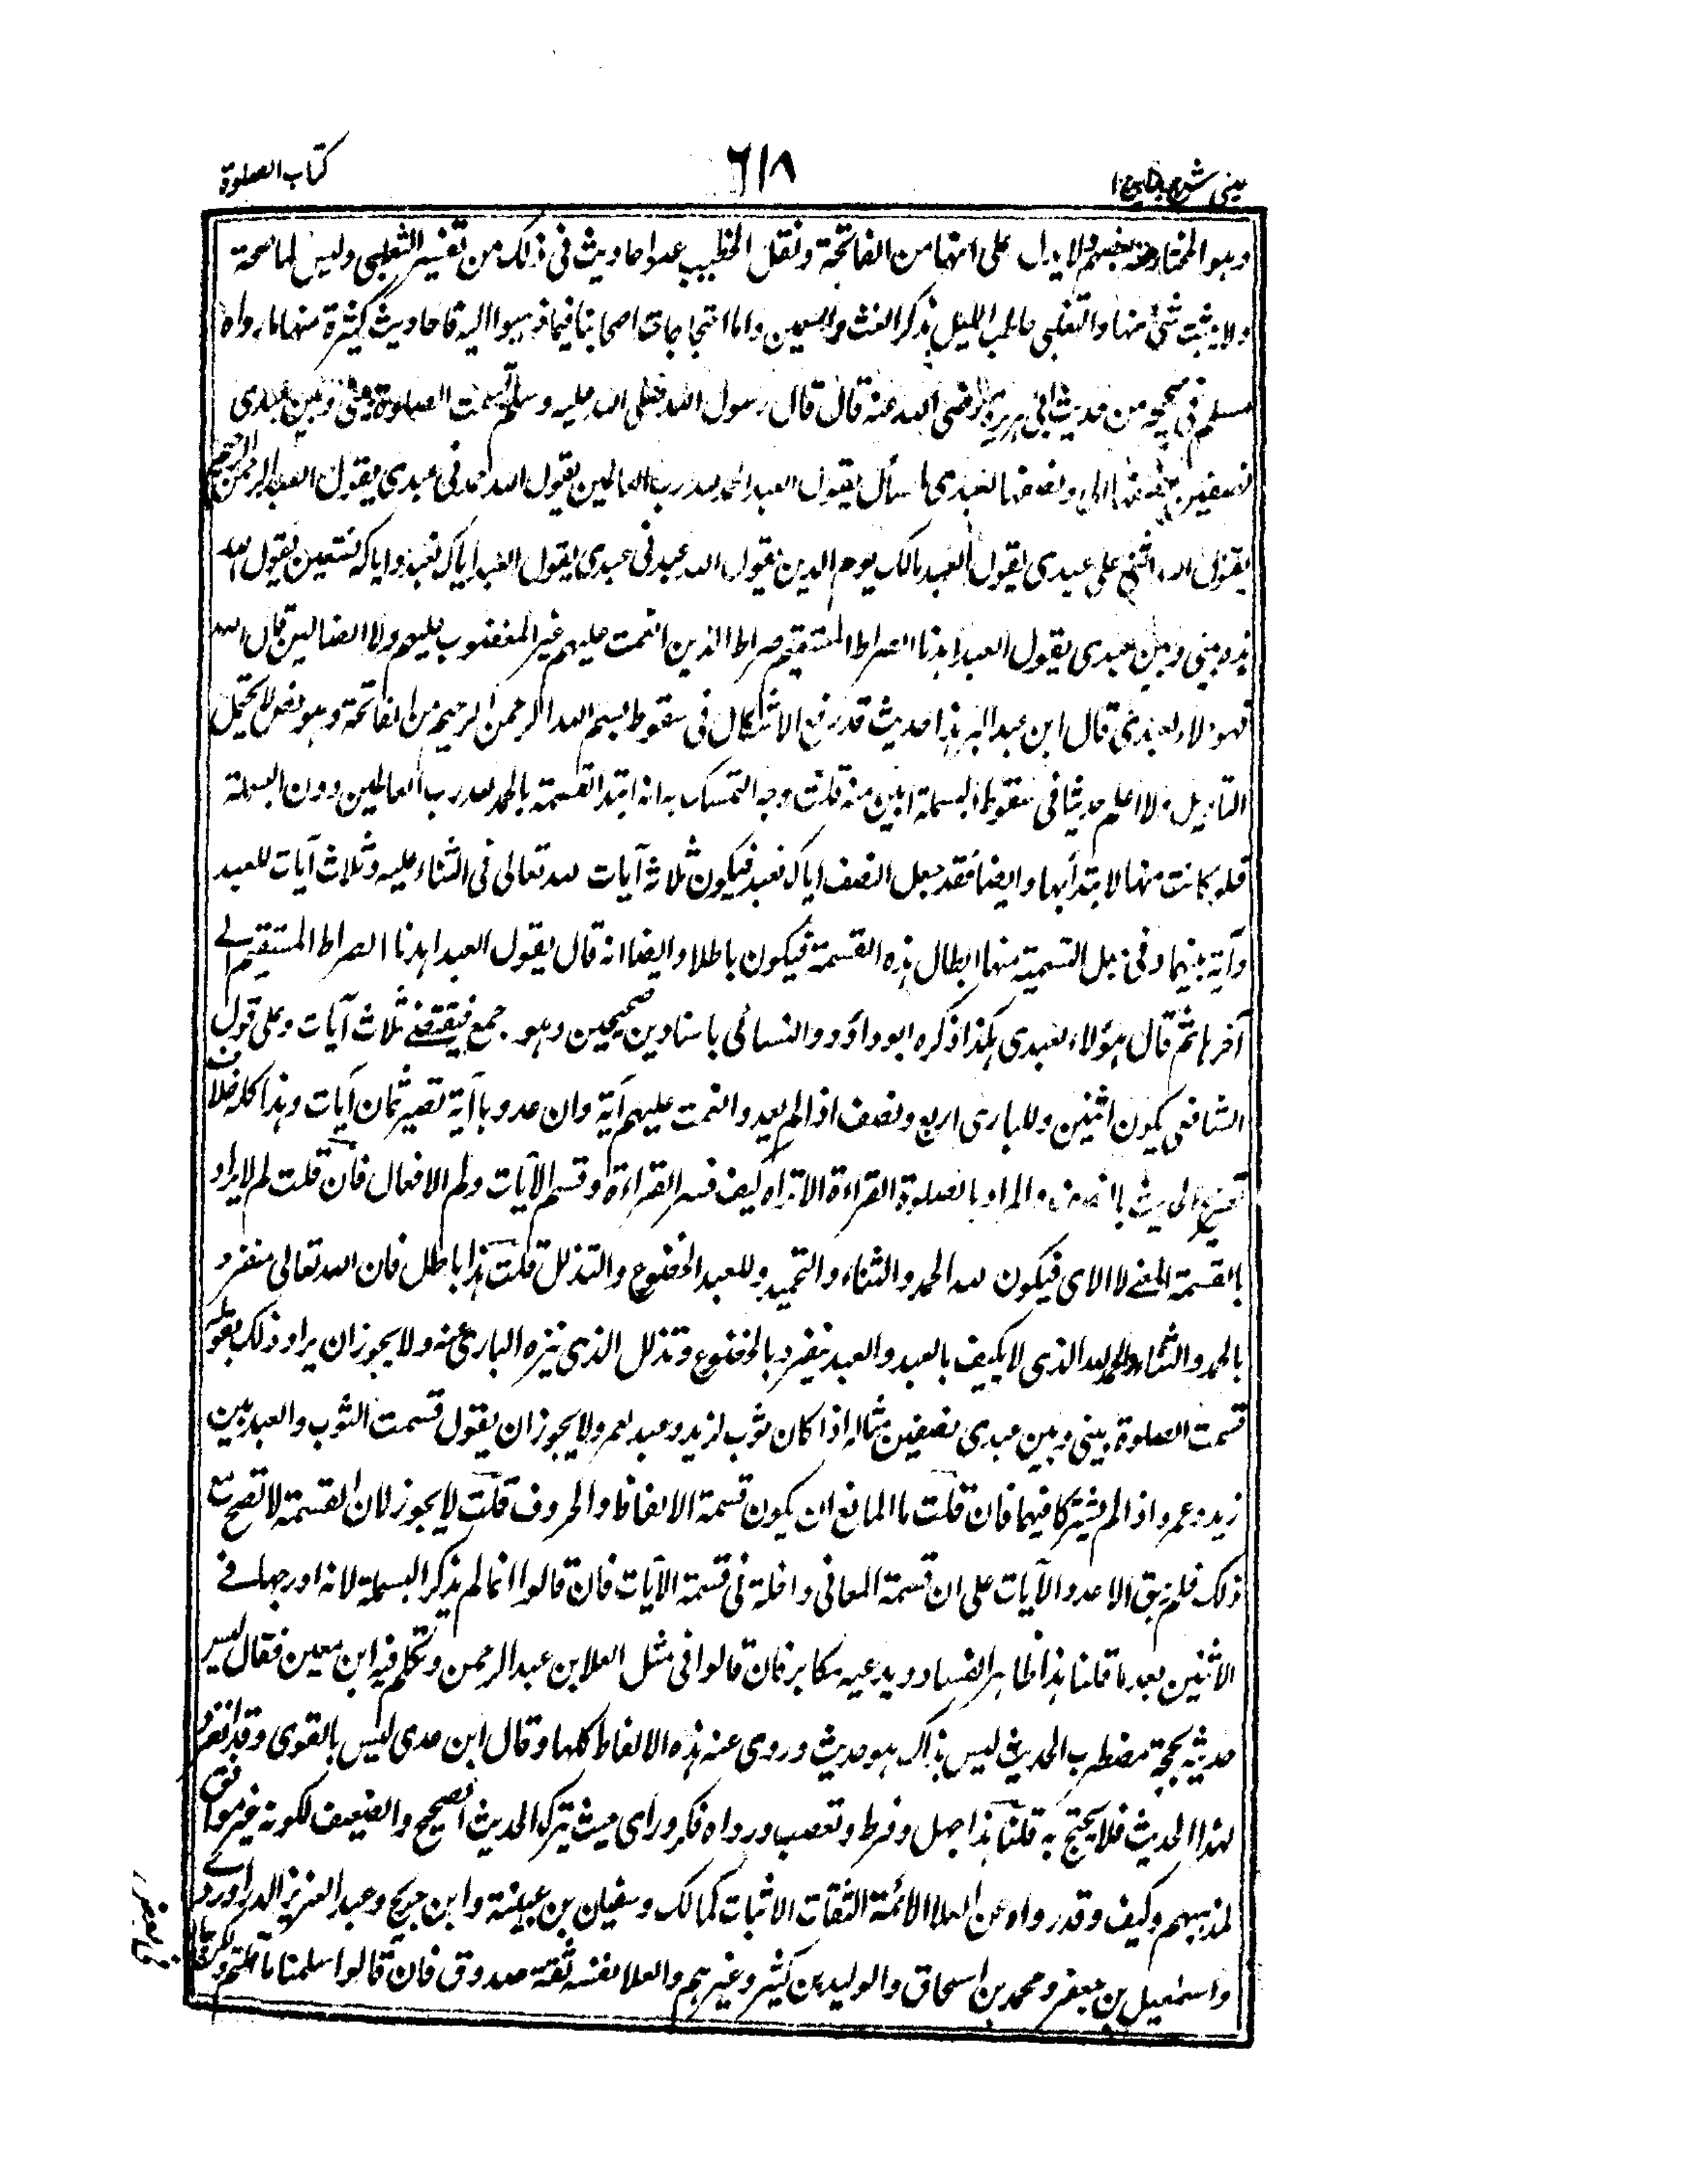 عينى شرح هدايه ج ١
٦١٨
كتاب الصلوة
وهو المختار عند بعضهم ولا يدل على انها من الفاتحة ونقل الخطيب عدة احاديث فى ذلك من تفسير الثعلبى وليس لها صحة
ولا يثبت شئ منها والثعلبى حاطب الليل يذكر الغث والسمين واما احتجاجات اصحابنا فيما ذهبوا اليه فاحاديث كثيرة منها ما رواه
مسلم فى صحيحه من حديث ابى هريرة رضى الله عنه قال قال رسول الله صلى الله عليه وسلم قسمت الصلوة بينى وبين عبدى
نصفين نصفها لى ونصفها لعبدى ما سأل يقول العبد الحمد لله رب العالمين يقول الله حمدنى عبدى يقول العبد الرحمن الرحيم
يقول الله اثنى على عبدى يقول العبد مالك يوم الدين يقول الله عبدنى عبدى يقول العبد اياك نعبد واياك نستعين يقول الله
هذه بينى وبين عبدى يقول العبد اهدنا الصراط المستقيم صراط الذين انعمت عليهم غير المغضوب عليهم ولا الضالين قال الله
فهؤلاء لعبدى قال ابن عبد البر هذا حديث قد رفع الاشكال فى سقوط بسم الله الرحمن الرحيم من الفاتحة وهو نص لا يحتمل
التاويل ولا اعلم حديثا فى سقوط البسملة ابين منه قلت وجه التمسك به انه ابتدأ القسمة بالحمد لله رب العالمين دون البسملة
فلو كانت منها لابتدأ بها وايضا فقد جعل النصف اياك نعبد فيكون ثلاثة آيات لله تعالى فى الثناء عليه وثلاث آيات للعبد
وآية بينهما وفى جعل التسمية منها ابطال هذه القسمة فيكون باطلا وايضا انه قال يقول العبد اهدنا الصراط المستقيم الى
آخرها ثم قال هؤلاء لعبدى هكذا ذكره ابو داؤد والنسائى باسنادين صحيحين وهو جمع فيقتضى ثلاث آيات وعلى قول
الشافعى يكون اثنين وللبارى اربع ونصف اذا لم يعدوا انعمت عليهم آية وان عدوها آية تصير ثمان آيات وهذا كله خلاف
تصريح الحديث بالنصف والمراد بالصلوة القراءة الا تراه كيف فسر القراءة وقسم الآيات ولم الافعال فان قلت لم لا يراد
بالقسمة المعنى لا الاى فيكون لله الحمد والثناء والتمجيد وللعبد الخضوع والتذلل قلت هذا باطل فان الله تعالى منفرد
بالحمد والثناء والحمد لله الذى لا يكيف بالعبد والعبد ينفرد بالخضوع وتذلل الذى ينزه البارى عنه ولا يجوز ان يراد ذلك بقوله
قسمت الصلوة بينى وبين عبدى نصفين مثاله اذا كان ثوب لزيد وعبد لعمرو لا يجوز ان يقول قسمت الثوب والعبد بين
زيد وعمرو اذا لم يشتركا فيهما فان قلت ما المانع ان يكون قسمة الالفاظ والحروف قلت لا يجوز لان القسمة لا تصح مع
ذلك فلم يبق الا عدد الآيات على ان قسمة المعانى داخلة فى قسمة الآيات فان قالوا انما لم يذكر البسملة لانه ادرجها فى
الاثنين بعدها قلنا هذا ظاهر الفساد ويدعيه مكابر فان قالوا فى مثل العلا بن عبد الرحمن وتكلم فيه ابن معين فقال ليس
حديثه بحجة مضطرب الحديث ليس بذاك هو حديث وروى عنه هذه الالفاظ كلها وقال ابن عدى ليس بالقوى وقد انفرد
لهذا الحديث فلا يحتج به قلنا هذا جهل وفرط وتعصب ورداه فكر وراى حيث يترك الحديث الصحيح والضعيف لكونه غير موافق
لمذهبهم وكيف وقد رواه عن العلا الائمة الثقات الاثبات كمالك وسفيان بن عيينة وابن جريج وعبد العزيز الدراوردى
واسمعيل بن جعفر ومحمد بن اسحاق والوليد بن كثير وغيرهم والعلا نفسه ثقة صدوق فان قالوا سلمنا ما قلتم ولكن